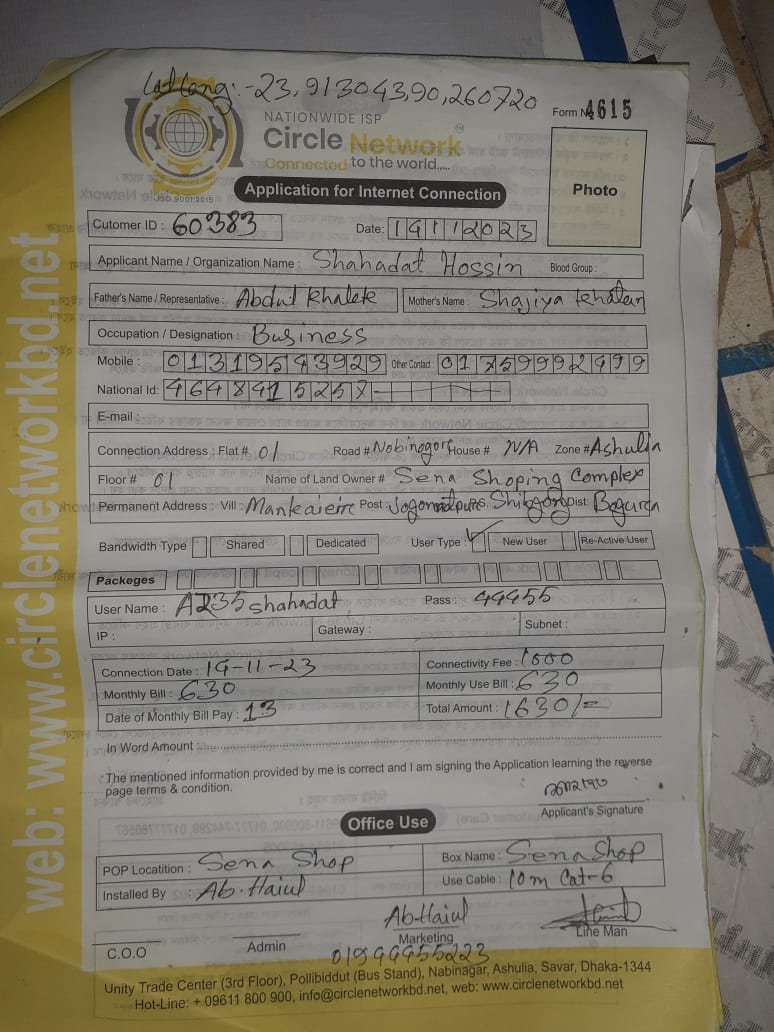 Lat Long:-23,913043,90,260720
NATIONWIDE ISP
Form No 4615
Circle Network
Connected to the world.....
ISO 9001:2015
Application for Internet Connection
Photo
Cutomer ID : 60383
Date: 19112023
Applicant Name / Organization Name : Shahadat Hossin Blood Group :
Father's Name / Representative : Abdul Khalek Mother's Name : Shajiya Khatan
Occupation / Designation : Business
Mobile : 01319543929 Other Contact : 01759992499
National Id:
E-mail :
Connection Address : Flat # 01 Road # Nobinogor House # N/A Zone # Ashulia
Floor # 01 Name of Land Owner # Sena Shoping Complex
Permanent Address : Vill : Post : P.S: Shibgong Dist: Bogura
Bandwidth Type Shared Dedicated User Type : ✓ New User Re-Active User
Packeges
User Name : A235shahadat Pass : 44455
IP : Gateway : Subnet :
Connection Date : 19-11-23 Connectivity Fee : 1000
Monthly Bill : 630 Monthly Use Bill : 630
Date of Monthly Bill Pay : 13 Total Amount : 1630/=
In Word Amount :
The mentioned information provided by me is correct and I am signing the Application learning the reverse
page terms & condition.
Applicant's Signature
Office Use
POP Locatition : Sena Shop Box Name : Sena Shop
Installed By : Ab-Haiul Use Cable : 10m Cat-6
Ab-Haiul
C.O.O Admin Marketing Line Man
01944455223
Unity Trade Center (3rd Floor), Pollibiddut (Bus Stand), Nabinagar, Ashulia, Savar, Dhaka-1344
Hot-Line: + 09611 800 900, info@circlenetworkbd.net, web: www.circlenetworkbd.net
web: www.circlenetworkbd.net